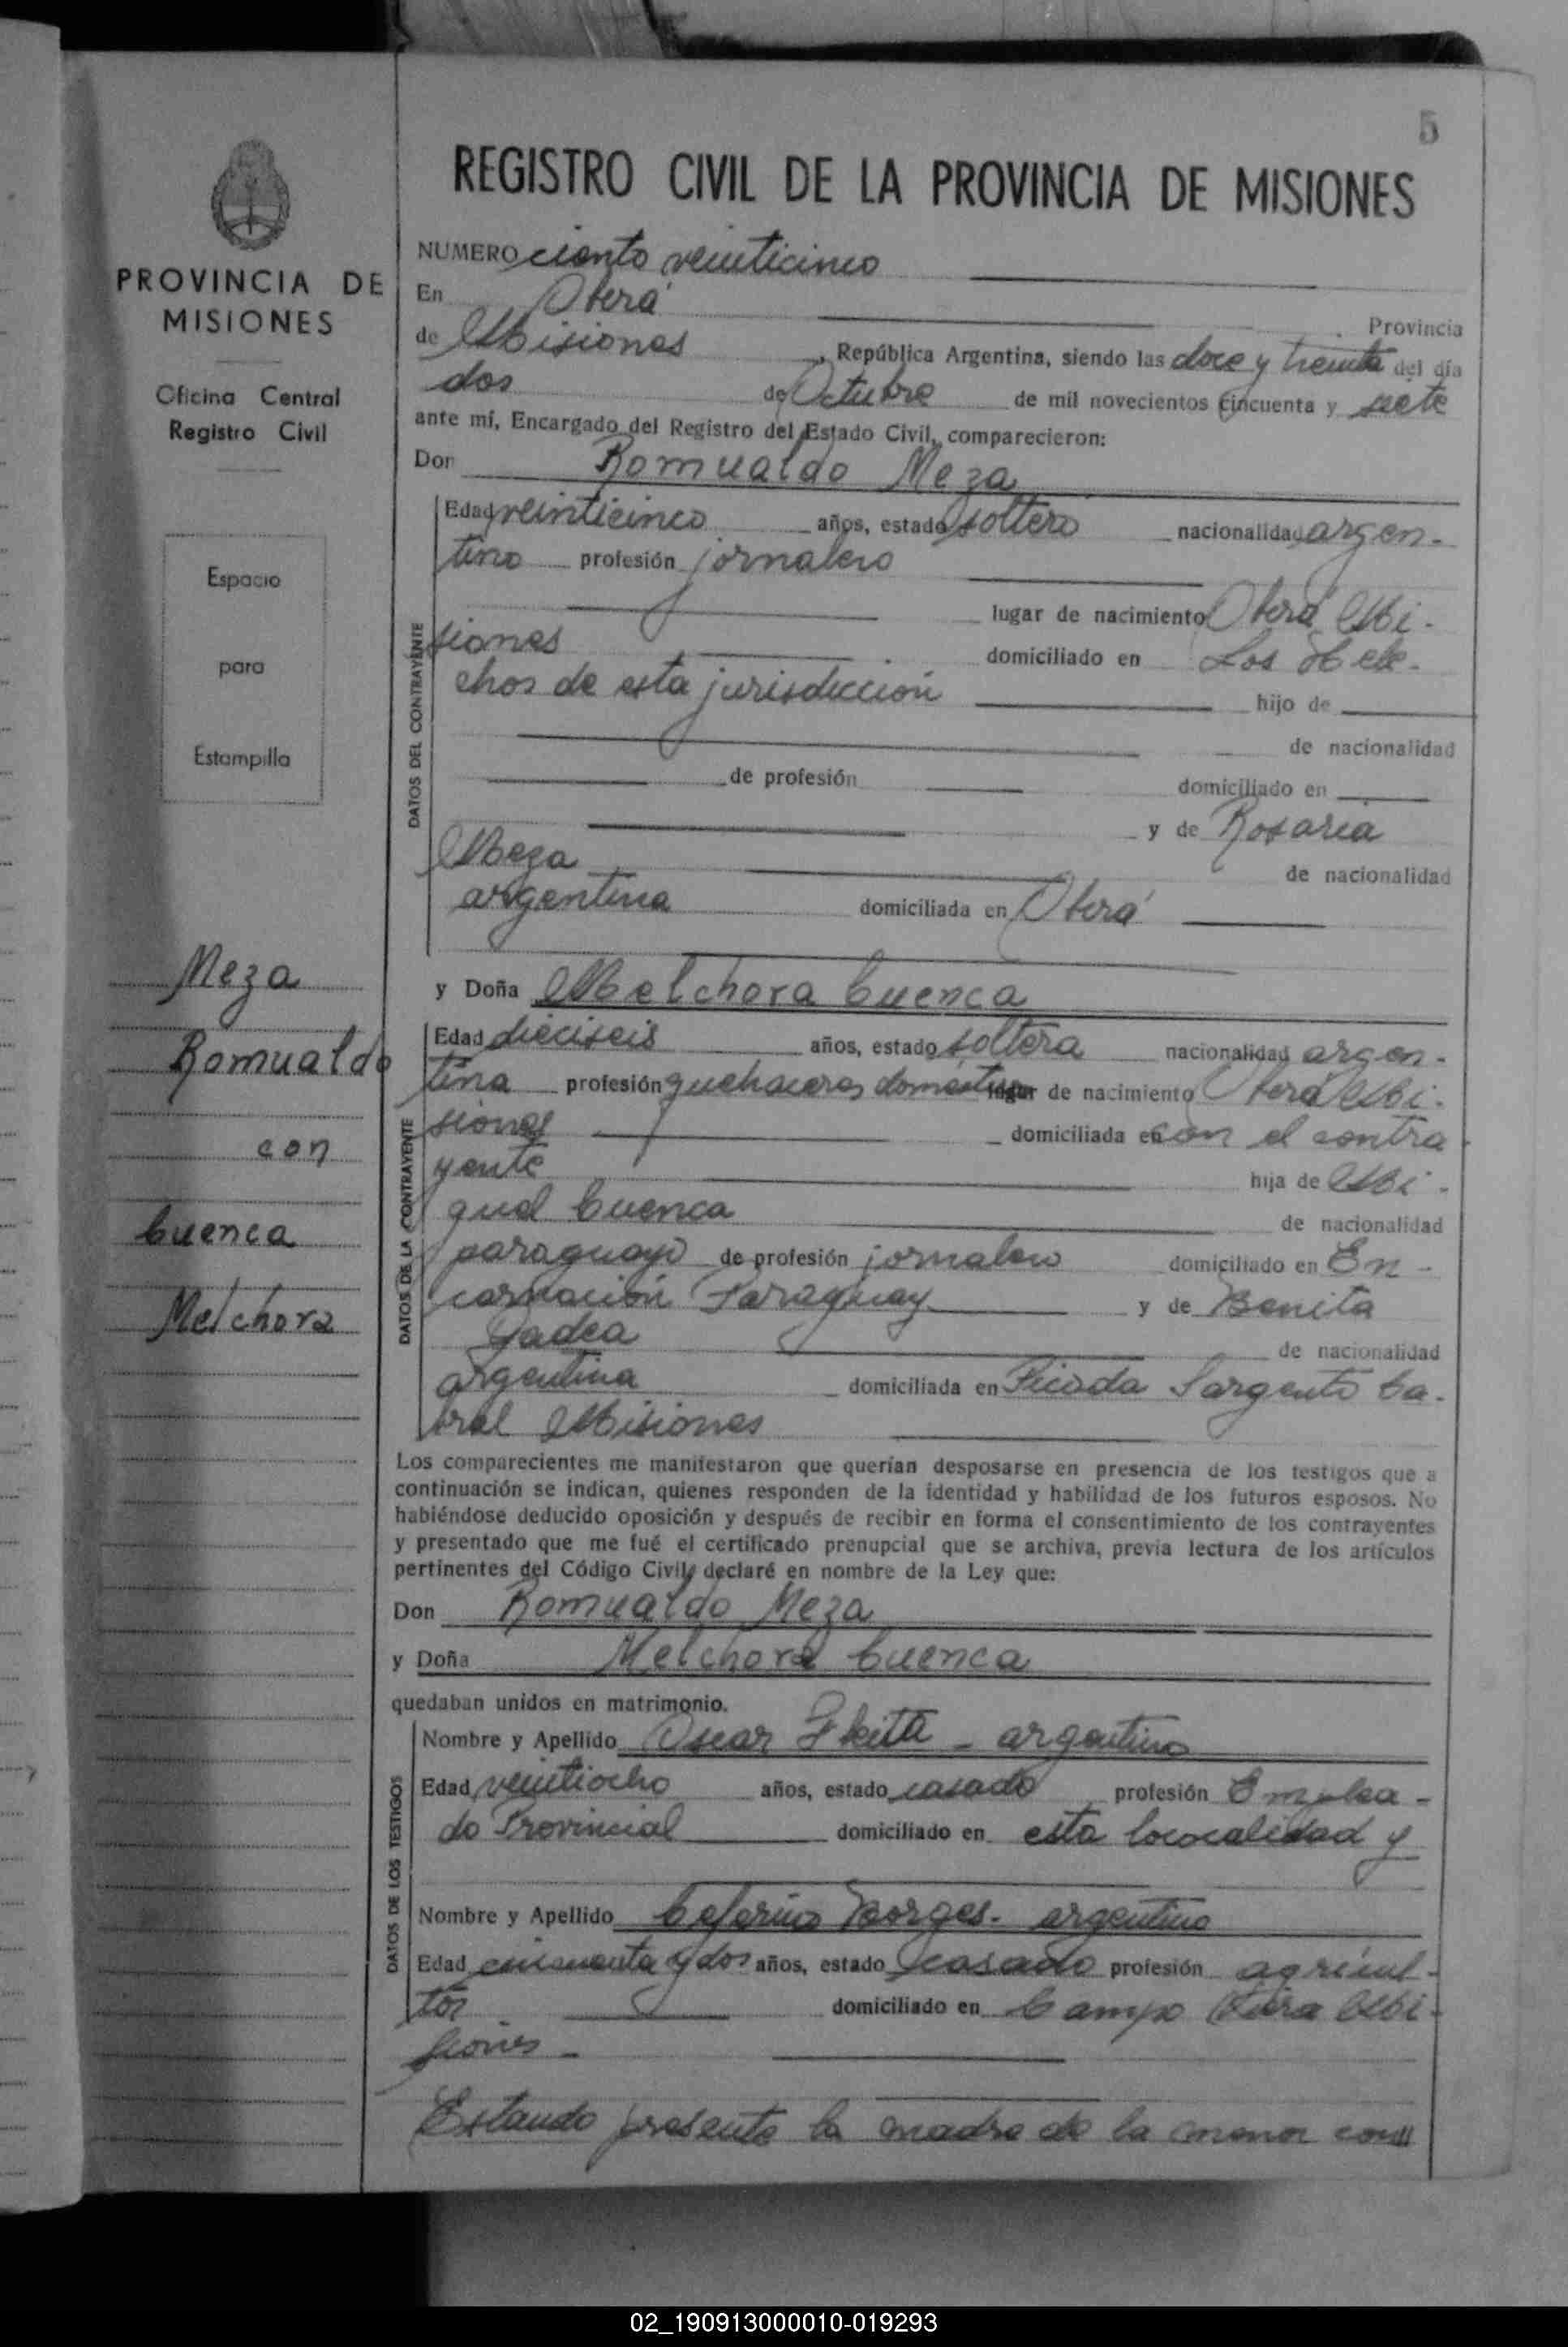 5
REGISTRO CIVIL DE LA PROVINCIA DE MISIONES
PROVINCIA DE
MISIONES
Oficina Central
Registro Civil
Espacio
para
Estampilla
Meza
Romualdo
con
Cuenca
Melchora
NUMERO ciento veinticinco
En Oberá Provincia
de Misiones, República Argentina, siendo las doce y treinta del día
dos de Octubre de mil novecientos cincuenta y siete
ante mí, Encargado del Registro del Estado Civil, comparecieron:
Don Romualdo Meza
DATOS DEL CONTRAYENTE
Edad veinticinco años, estado soltero nacionalidad argen-
tino profesión jornalero
lugar de nacimiento Oberá Mi-
siones domiciliado en Los Hele-
chos de esta jurisdicción hijo de
de nacionalidad
de profesión domiciliado en
y de Rosaria
Meza de nacionalidad
argentina domiciliada en Oberá
y Doña Melchora Cuenca
DATOS DE LA CONTRAYENTE
Edad dieciseis años, estado soltera nacionalidad argen-
tina profesión quehaceres domésticos lugar de nacimiento Oberá Mi-
siones domiciliada en con el contra
yente hija de Mi-
guel Cuenca de nacionalidad
paraguayo de profesión jornalero domiciliado en En-
carnación Paraguay y de Benita
Gadea de nacionalidad
argentina domiciliada en Picada Sargento Ca-
bral Misiones
Los comparecientes me manifestaron que querían desposarse en presencia de los testigos que a
continuación se indican, quienes responden de la identidad y habilidad de los futuros esposos. No
habiéndose deducido oposición y después de recibir en forma el consentimiento de los contrayentes
y presentado que me fué el certificado prenupcial que se archiva, previa lectura de los artículos
pertinentes del Código Civil, declaré en nombre de la Ley que:
Don Romualdo Meza
y Doña Melchora Cuenca
quedaban unidos en matrimonio.
DATOS DE LOS TESTIGOS
Nombre y Apellido Oscar Fleita - argentino
Edad veintiocho años, estado casado profesión Emplea-
do Provincial domiciliado en esta lococalidad y
Nombre y Apellido Ceferino Borges - argentino
Edad cincuenta y dos años, estado casado profesión agricul-
tor domiciliado en Campo Viera Mi-
siones -
Estando presente la madre de la menor con
02_190913000010-019293